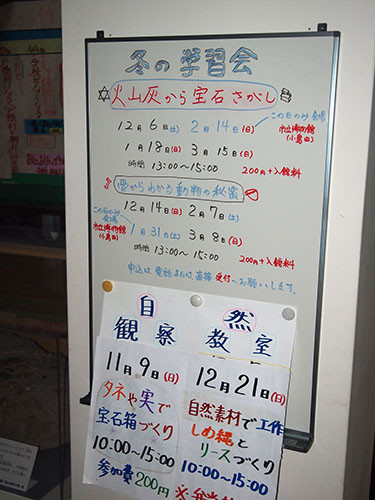 冬の学習会
火山灰から宝石さがし
12月6日(土) 2月14日(日)
この日のみ会場
市立博物館
(小島田)
1月18日(日) 3月15日(日)
時間 13:00～15:00
200円+入館料
骨からわかる動物の秘密
12月14日(日) 2月7日(土)
この日のみ
会場
市立博物館
(小島田)
1月31日(土) 3月8日(日)
時間 13:00～15:00
200円+入館料
申込は、電話または、直接受付へお願いします。
自然
観察教室
11月9日(日)
タネや実で
宝石箱づくり
10:00～15:00
参加費200円
12月21日(日)
自然素材で工作
しめ縄と
リースづくり
10:00～15:00